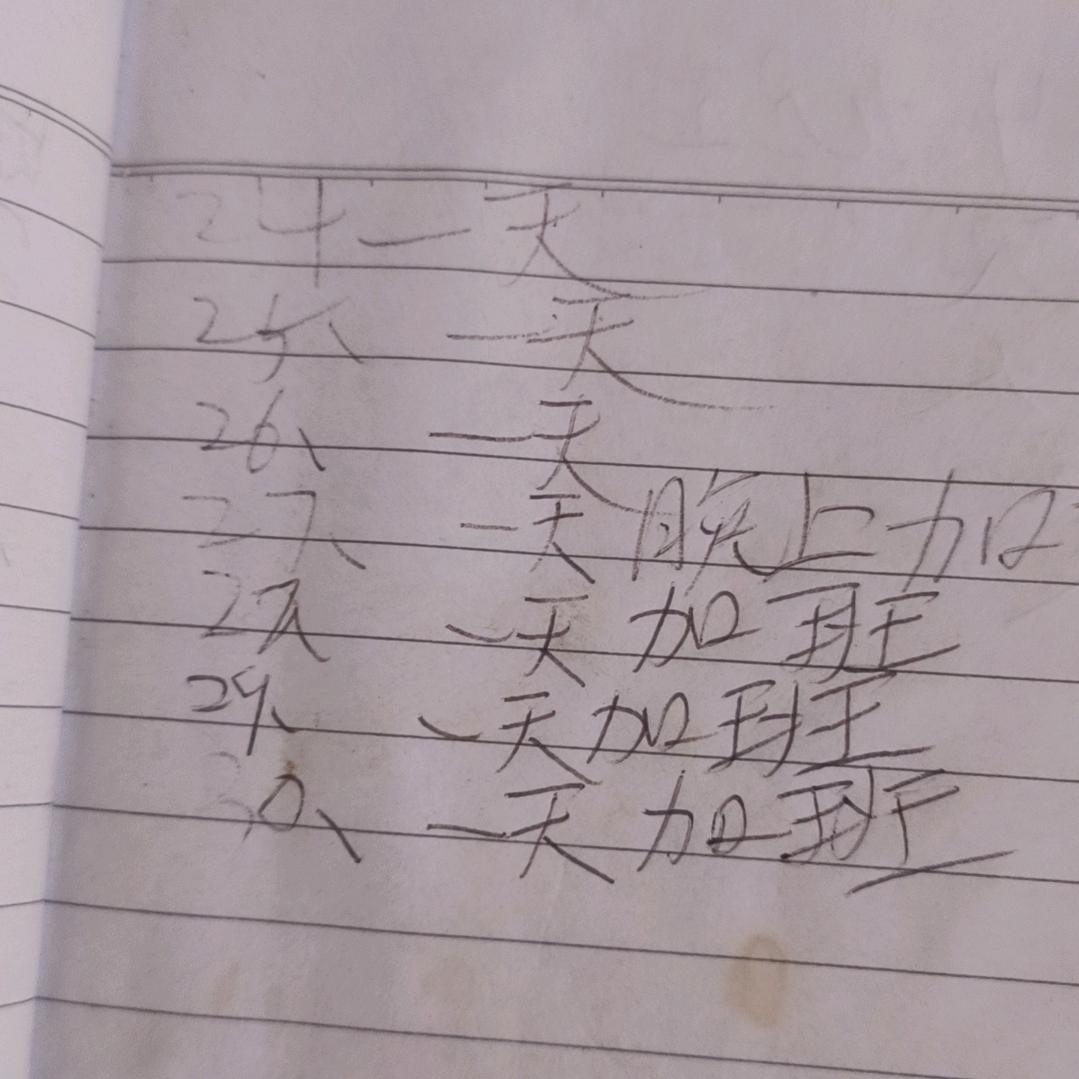 24 一天
25、 一天
26、 一天
27、 一天 晚上加
28、 一天 加班
29、 一天加班
30、 一天 加班